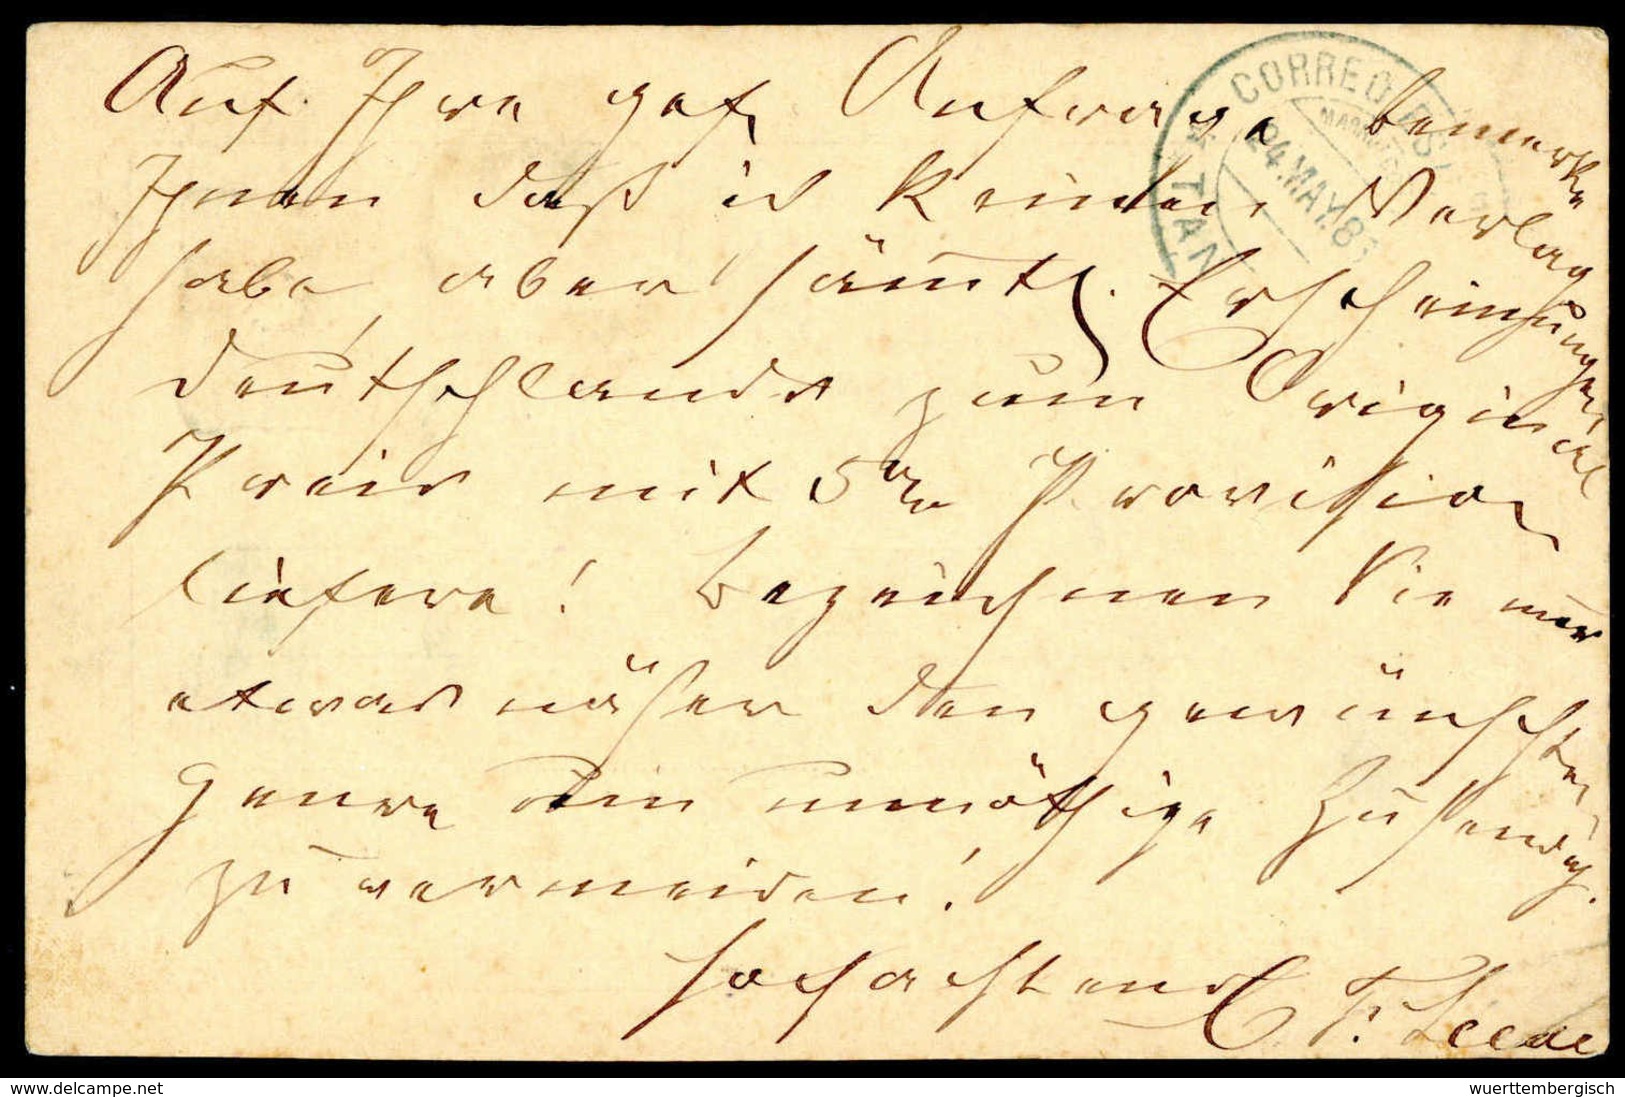 Auf Ihre gef. Anfrage bemerke
Ihnen daß ich keinen Verlag
habe, aber sämtl. Erscheinungen
Deutschlands zum Original
Preis mit 5% Provision
liefere! Bezeichnen Sie nur
etwas näher den gewünschten
Genre um unnöthige Zusendg.
zu vermeiden!
Hochachtend C. F.
CORREOS
24.MAY.8
TAN
www.delcampe.net
wuerttembergisch